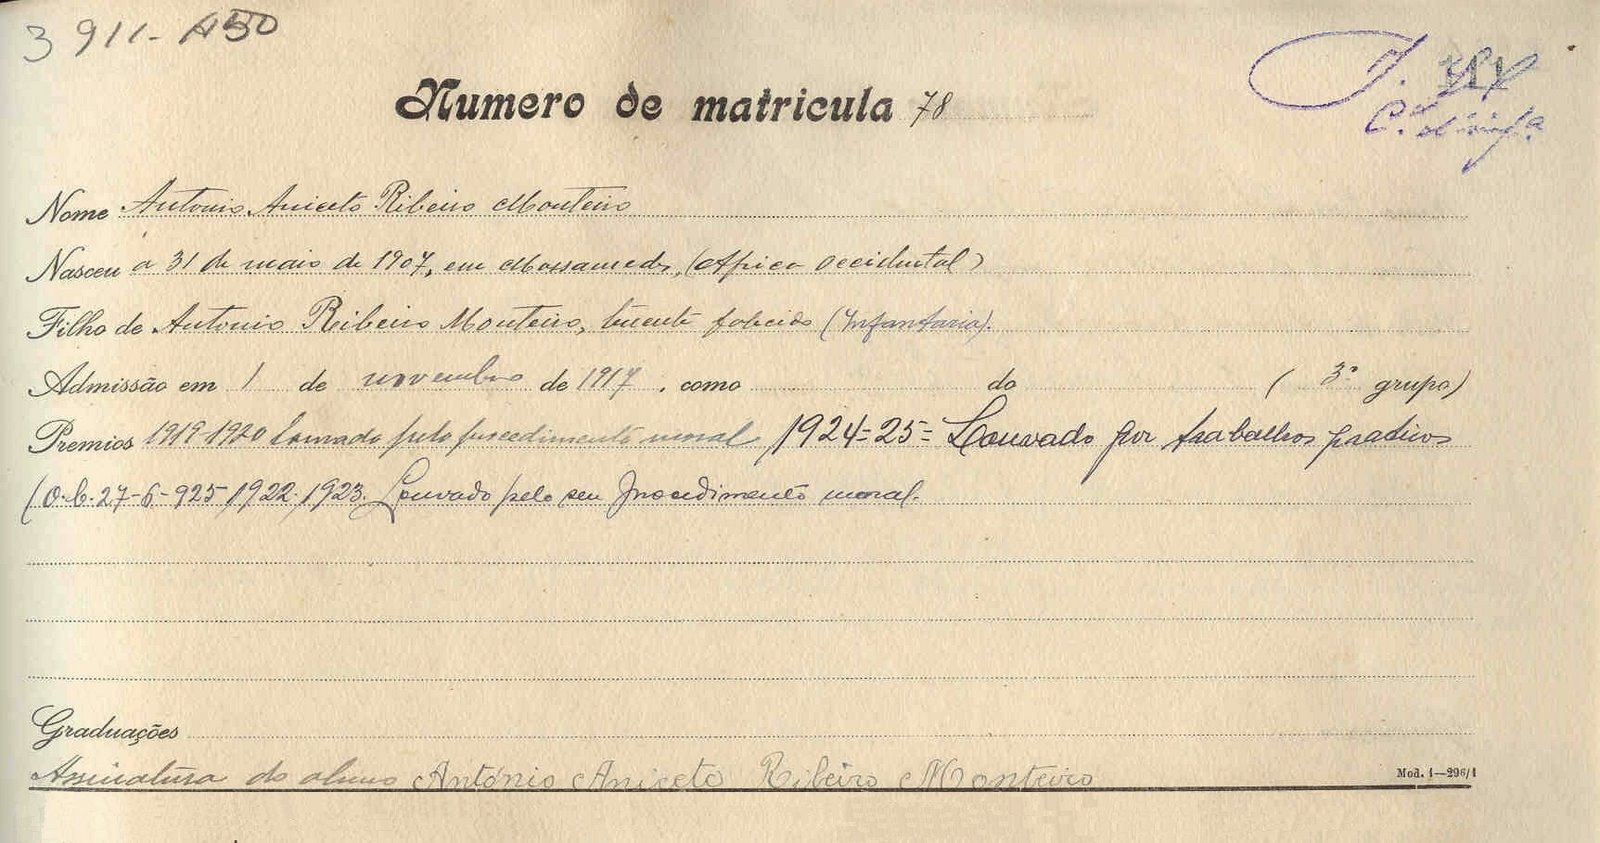 3 911 - A50
Numero de matricula 78
Nome Antonio Aniceto Ribeiro Monteiro
Nasceu a 31 de maio de 1907, em Mossamedes, (Africa Occidental)
Filho de Antonio Ribeiro Monteiro, tenente falecido (Infantaria).
Admissão em 1 de novembro de 1917, como do ( 3º grupo)
Premios 1919-1920 Louvado pelo procedimento moral, 1924-25- Louvado por trabalhos praticos
(O.C. 27-6-925, 1922, 1923. Louvado pelo seu procedimento moral.
Graduações
Assinatura do aluno António Aniceto Ribeiro Monteiro
Mod. 1—296/1